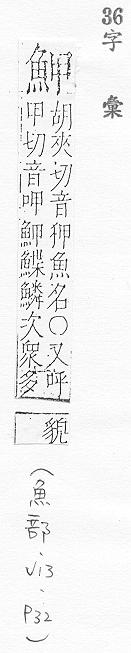 36字彙
魻
胡夾切音狎魚名○又呼
甲切音呷魻鰈鱗次衆多
貌
(魚部、V13、P32)